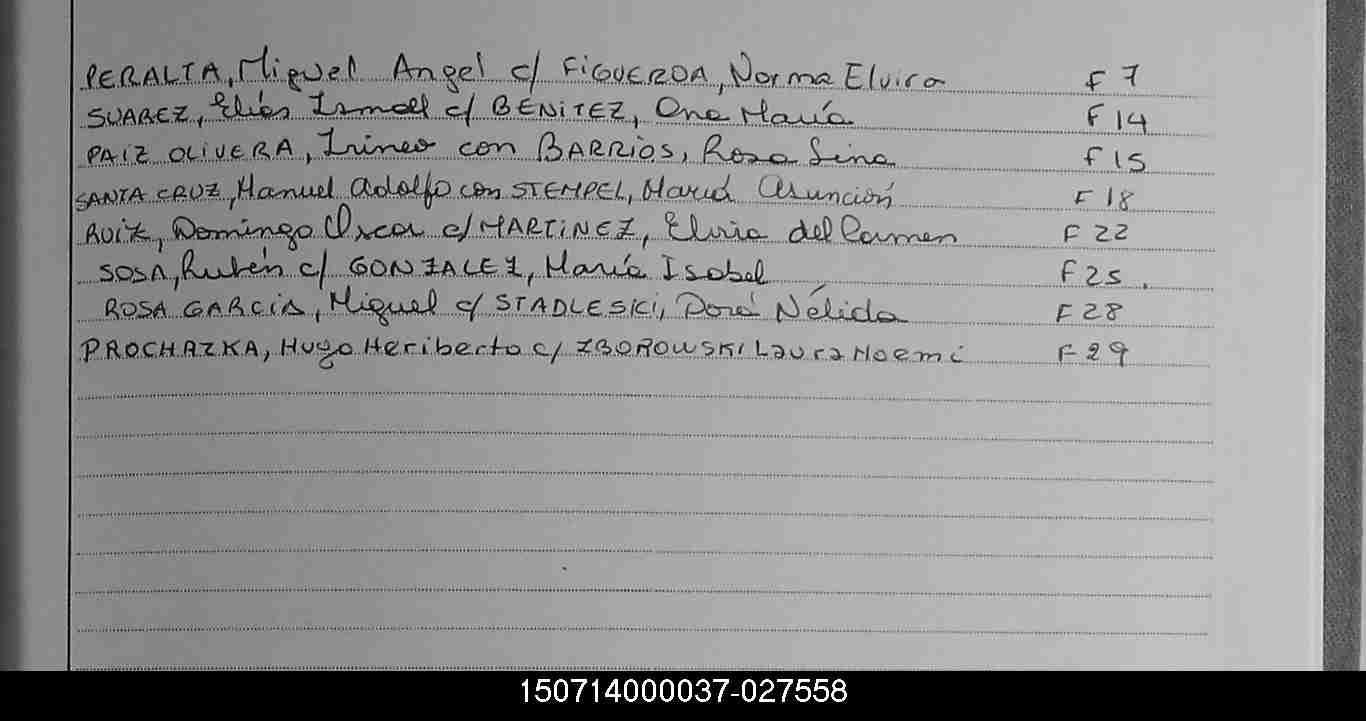 PERALTA, Miguel Angel c/ FIGUEROA, Norma Elvira F 7
SUAREZ, Elías Ismael c/ BENITEZ, Ana María F 14
PAIZ OLIVERA, Irineo con BARRIOS, Rosa Lina F 15
SANTA CRUZ, Manuel Adolfo con STEMPEL, María Asunción F 18
RUIZ, Domingo Oscar c/ MARTINEZ, Elvia del Carmen F 22
SOSA, Rubén c/ GONZALEZ, María Isabel F 25.
ROSA GARCIA, Miguel c/ STADLESKI, Nélida F 28
PROCHAZKA, Hugo Heriberto c/ ZBOROWSKI Laura Noemi F 29
150714000037-027558